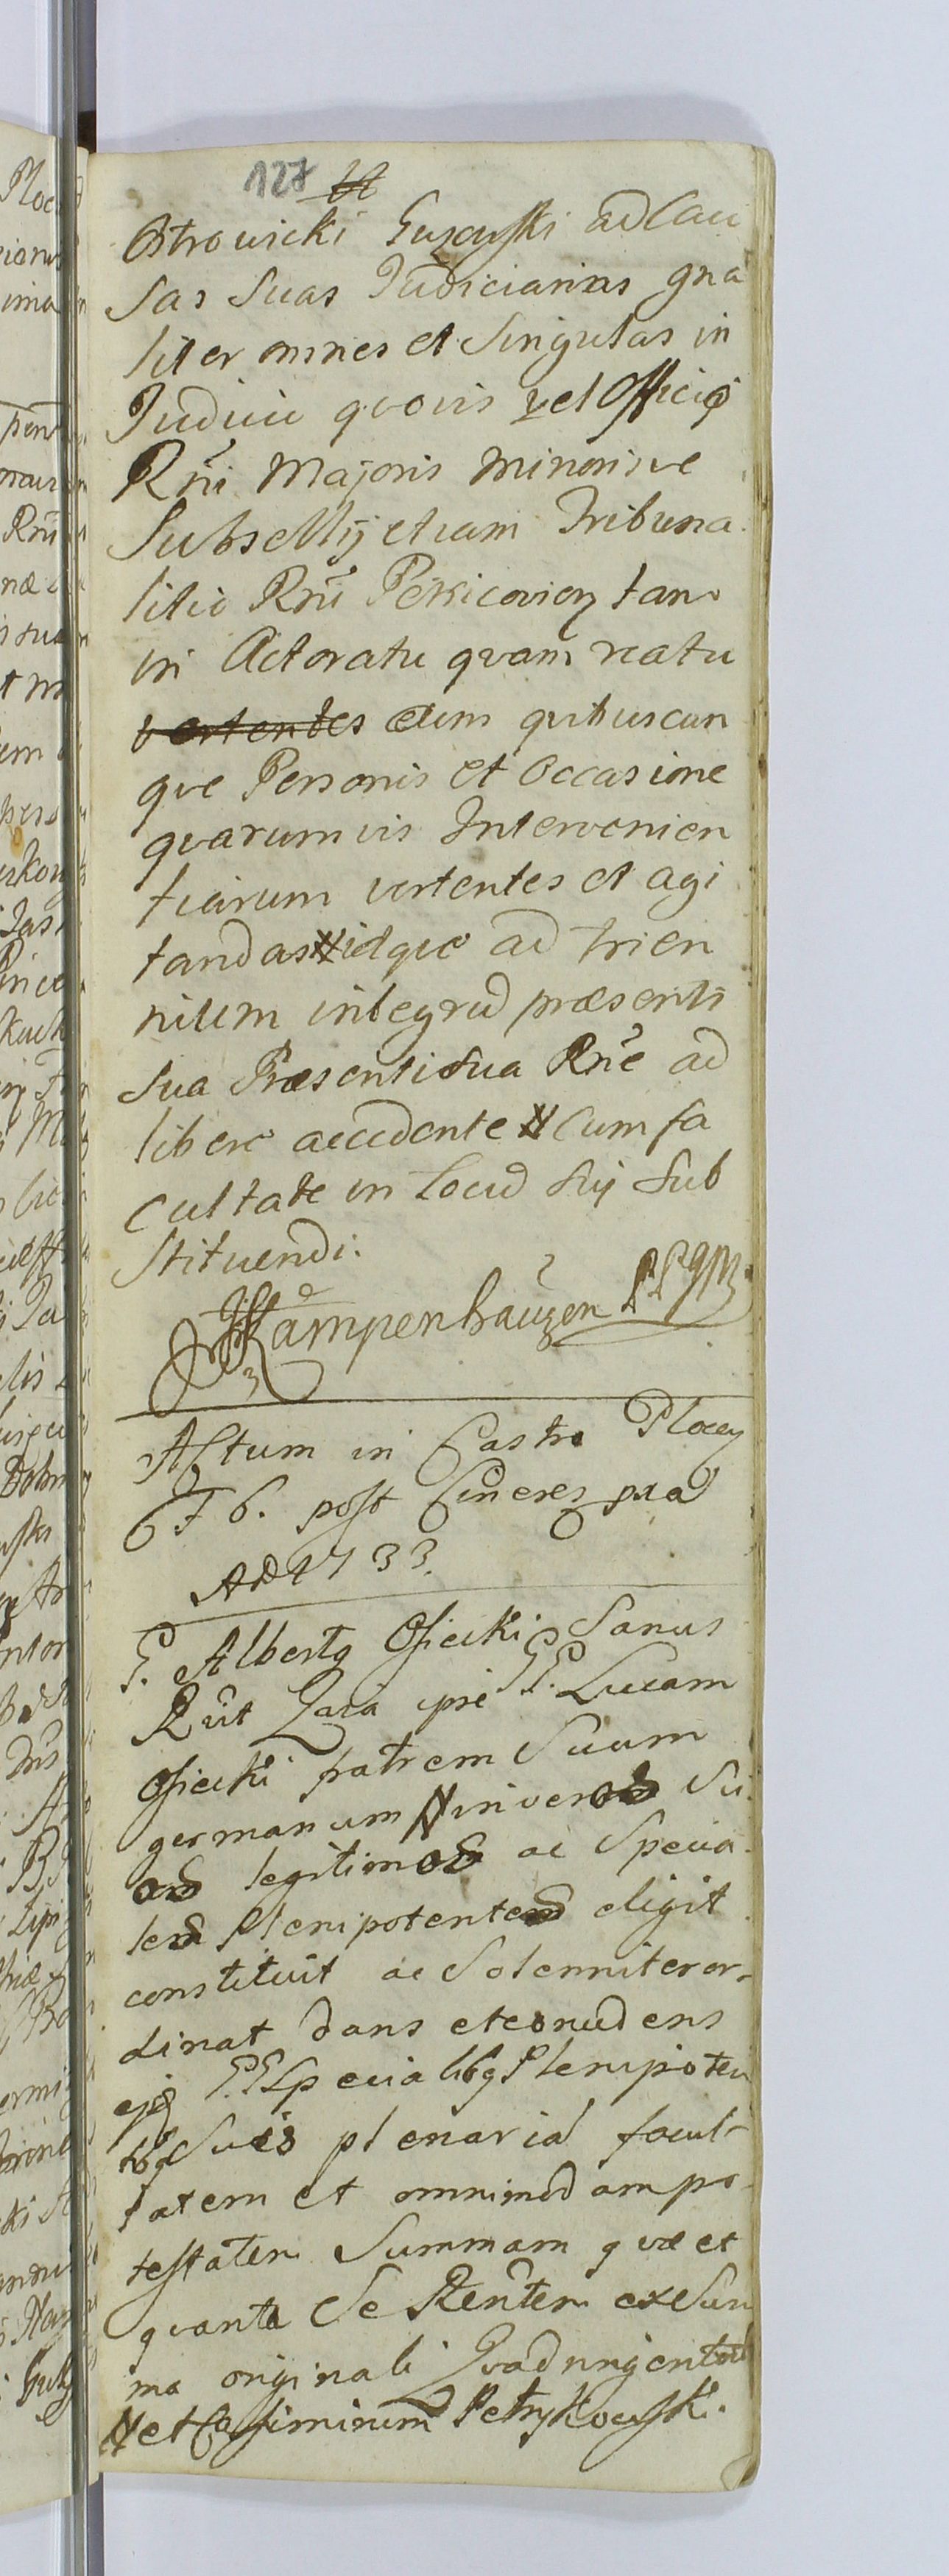 127
Ostrowicki Guzowski ad Cau
sas suas Judiciarias gna
liter omnes et singulas in
Judicio qvovis vel Officio
Rñi Majoris Minorisve
Subsellij etiam Tribuna
litio Rñi Petricovien tam
in Actoratu qvam reatu
vertentes cum qvibuscun
qve Personis et Occasione
qvarumvis Intervenien
tiarum vertentes et agi
tandas # idqve ad trien
nium integrũ præsenti
sua Præsenti sua Rñe ad
libere accedente # Cum fa
cultate in Locũ sui sub
stituendi.
Kampenhauzen
Actum in Castro Plocen
F 6. post Cineres pxa
AD 1733.
G. Albertq Osiecki Sanus
Rũt GG. Lucam
Osiecki fratrem Suum
germanum # in veros Su
os legitimos ac Specia
les Plenipotentes eligit
constituit ac Solenniter or-
dinat dans et conudens
ejs GG Specialibq Plenipoten
tibq Suis plenariã facul-
tatem et omnimodam po-
testatem Summam qvæ et
qvanta Se Rentem ex Sum
ma originali Qvadringentor
# et Casimirum Petrykowski.